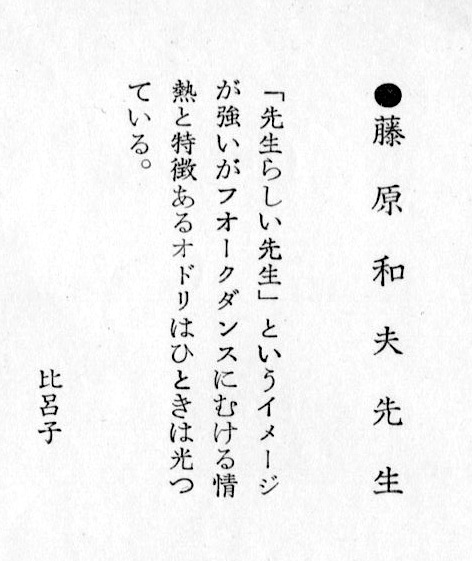 ●藤原和夫先生
「先生らしい先生」というイメージ
が強いがフオークダンスにむける情
熱と特徴あるオドリはひときは光つ
ている。
比呂子